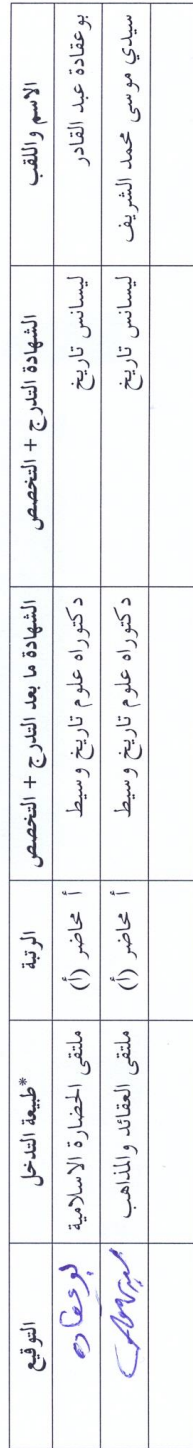 الاسم واللقب	الشهادة التدرج + التخصص	الشهادة ما بعد التدرج + التخصص	الرتبة	*طبيعة التدخل	التوقيع
بوعقادة عبد القادر	ليسانس تاريخ	دكتوراه علوم تاريخ وسيط	أ محاضر (أ)	ملتقى الحضارة الاسلامية	بوعقادة
سيدي موسى محمد الشريف	ليسانس تاريخ	دكتوراه علوم تاريخ وسيط	أ محاضر (أ)	ملتقى العقائد والمذاهب